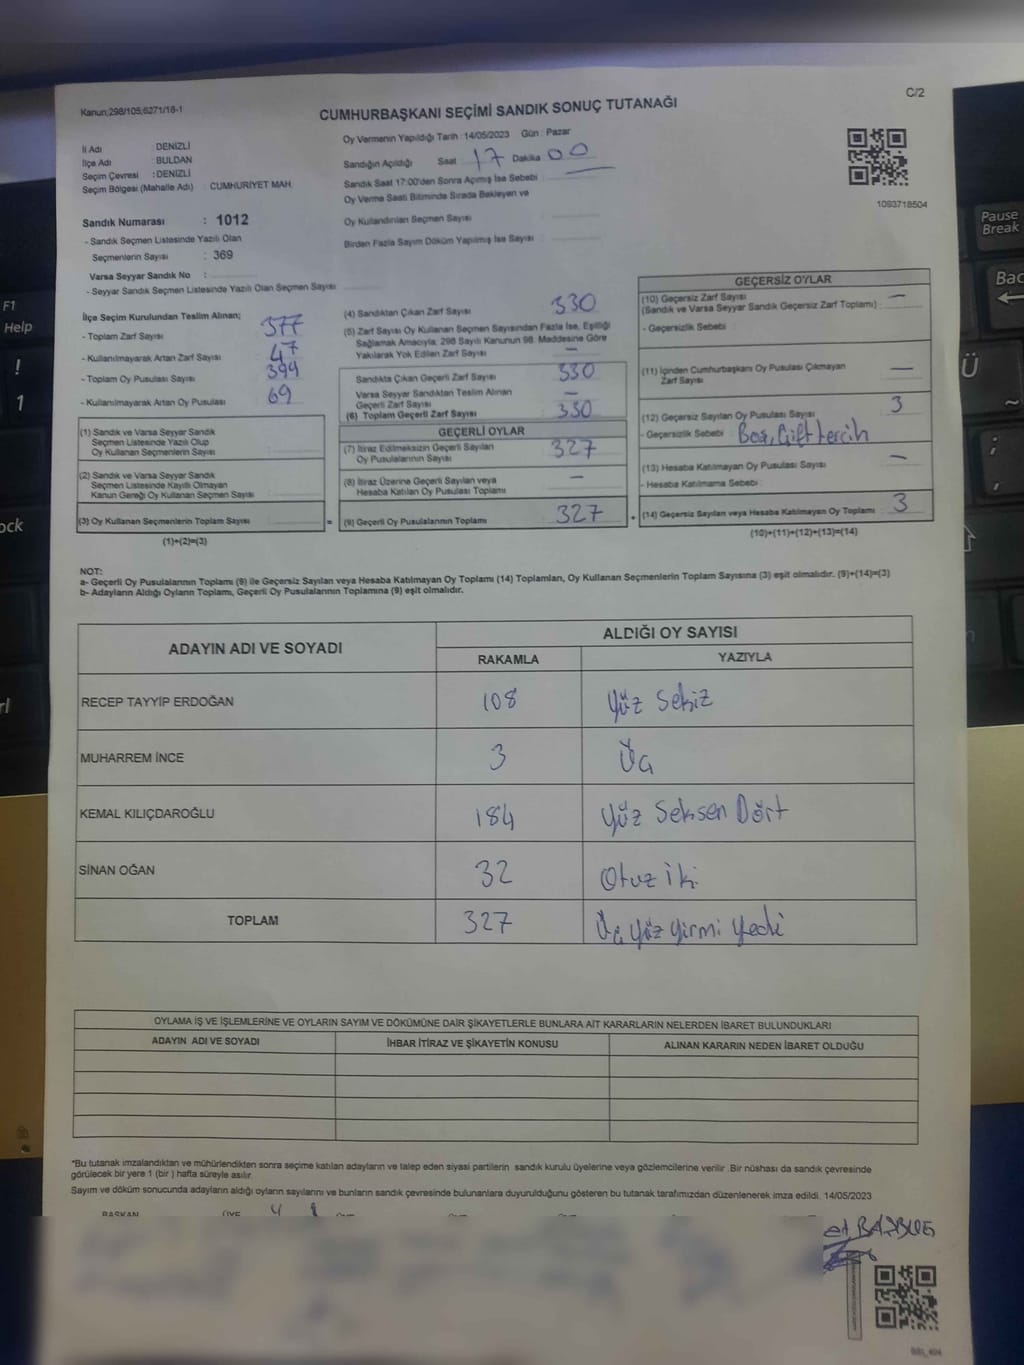 Kanun;298/105;6271/18-1
C/2
CUMHURBAŞKANI SEÇİMİ SANDIK SONUÇ TUTANAĞI
İl Adı : DENİZLİ
İlçe Adı : BULDAN
Seçim Çevresi : DENİZLİ
Seçim Bölgesi (Mahalle Adı) : CUMHURİYET MAH.
Sandık Numarası : 1012
- Sandık Seçmen Listesinde Yazılı Olan
Seçmenlerin Sayısı : 369
Varsa Seyyar Sandık No :
- Seyyar Sandık Seçmen Listesinde Yazılı Olan Seçmen Sayısı
Oy Vermenin Yapıldığı Tarih : 14/05/2023 Gün : Pazar
Sandığın Açıldığı Saat : 17 Dakika 00
Sandık Saat 17:00'den Sonra Açımış İse Sebebi :
Oy Verme Saati Bitiminde Sırada Bekleyen ve
Oy Kullandırılan Seçmen Sayısı
Birden Fazla Sayım Döküm Yapılmış İse Sayısı :
1093718504
İlçe Seçim Kurulundan Teslim Alınan;
- Toplam Zarf Sayısı 377
- Kullanılmayarak Artan Zarf Sayısı 47
- Toplam Oy Pusulası Sayısı 399
- Kullanılmayarak Artan Oy Pusulası 69
(1) Sandık ve Varsa Seyyar Sandık
Seçmen Listesinde Yazılı Olup
Oy Kullanan Seçmenlerin Sayısı :
(2) Sandık ve Varsa Seyyar Sandık
Seçmen Listesinde Kayıtlı Olmayan
Kanun Gereği Oy Kullanan Seçmen Sayısı :
(3) Oy Kullanan Seçmenlerin Toplam Sayısı =
(1)+(2)=(3)
(4) Sandıktan Çıkan Zarf Sayısı 330
(5) Zarf Sayısı Oy Kullanan Seçmen Sayısından Fazla İse, Eşitliği
Sağlamak Amacıyla, 298 Sayılı Kanunun 98. Maddesine Göre
Yakılarak Yok Edilen Zarf Sayısı —
Sandıkta Çıkan Geçerli Zarf Sayısı 330
Varsa Seyyar Sandıktan Teslim Alınan
Geçerli Zarf Sayısı —
(6) Toplam Geçerli Zarf Sayısı 330
GEÇERLİ OYLAR
(7) İtiraz Edilmeksizin Geçerli Sayılan
Oy Pusulalarının Sayısı 327
(8) İtiraz Üzerine Geçerli Sayılan veya
Hesaba Katılan Oy Pusulası Toplamı —
(9) Geçerli Oy Pusulalarının Toplamı 327 +
GEÇERSİZ OYLAR
(10) Geçersiz Zarf Sayısı —
(Sandık ve Varsa Seyyar Sandık Geçersiz Zarf Toplamı)
- Geçersizlik Sebebi :
(11) İçinden Cumhurbaşkanı Oy Pusulası Çıkmayan
Zarf Sayısı —
(12) Geçersiz Sayılan Oy Pusulası Sayısı 3
- Geçersizlik Sebebi : Boş, Çift tercih
(13) Hesaba Katılmayan Oy Pusulası Sayısı —
- Hesaba Katılmama Sebebi :
(14) Geçersiz Sayılan veya Hesaba Katılmayan Oy Toplamı 3
(10)+(11)+(12)+(13)=(14)
NOT:
a- Geçerli Oy Pusulalarının Toplamı (9) ile Geçersiz Sayılan veya Hesaba Katılmayan Oy Toplamı (14) Toplamları, Oy Kullanan Seçmenlerin Toplam Sayısına (3) eşit olmalıdır. (9)+(14)=(3)
b- Adayların Aldığı Oyların Toplamı, Geçerli Oy Pusulalarının Toplamına (9) eşit olmalıdır.
ADAYIN ADI VE SOYADI ALDIĞI OY SAYISI
RAKAMLA YAZIYLA
RECEP TAYYİP ERDOĞAN 108 Yüz Sekiz
MUHARREM İNCE 3 Üç
KEMAL KILIÇDAROĞLU 184 Yüz Seksen Dört
SİNAN OĞAN 32 Otuz iki
TOPLAM 327 Üç yüz yirmi yedi
OYLAMA İŞ VE İŞLEMLERİNE VE OYLARIN SAYIM VE DÖKÜMÜNE DAİR ŞİKAYETLERLE BUNLARA AİT KARARLARIN NELERDEN İBARET BULUNDUKLARI
ADAYIN ADI VE SOYADI İHBAR İTİRAZ VE ŞİKAYETİN KONUSU ALINAN KARARIN NEDEN İBARET OLDUĞU
*Bu tutanak imzalandıktan ve mühürlendikten sonra seçime katılan adayların ve talep eden siyasi partilerin sandık kurulu üyelerine veya gözlemcilerine verilir .Bir nüshası da sandık çevresinde
görülecek bir yere 1 (bir ) hafta süreyle asılır.
Sayım ve döküm sonucunda adayların aldığı oyların sayılarını ve bunların sandık çevresinde bulunanlara duyurulduğunu gösteren bu tutanak tarafımızdan düzenlenerek imza edildi. 14/05/2023
BAŞKAN ÜYE